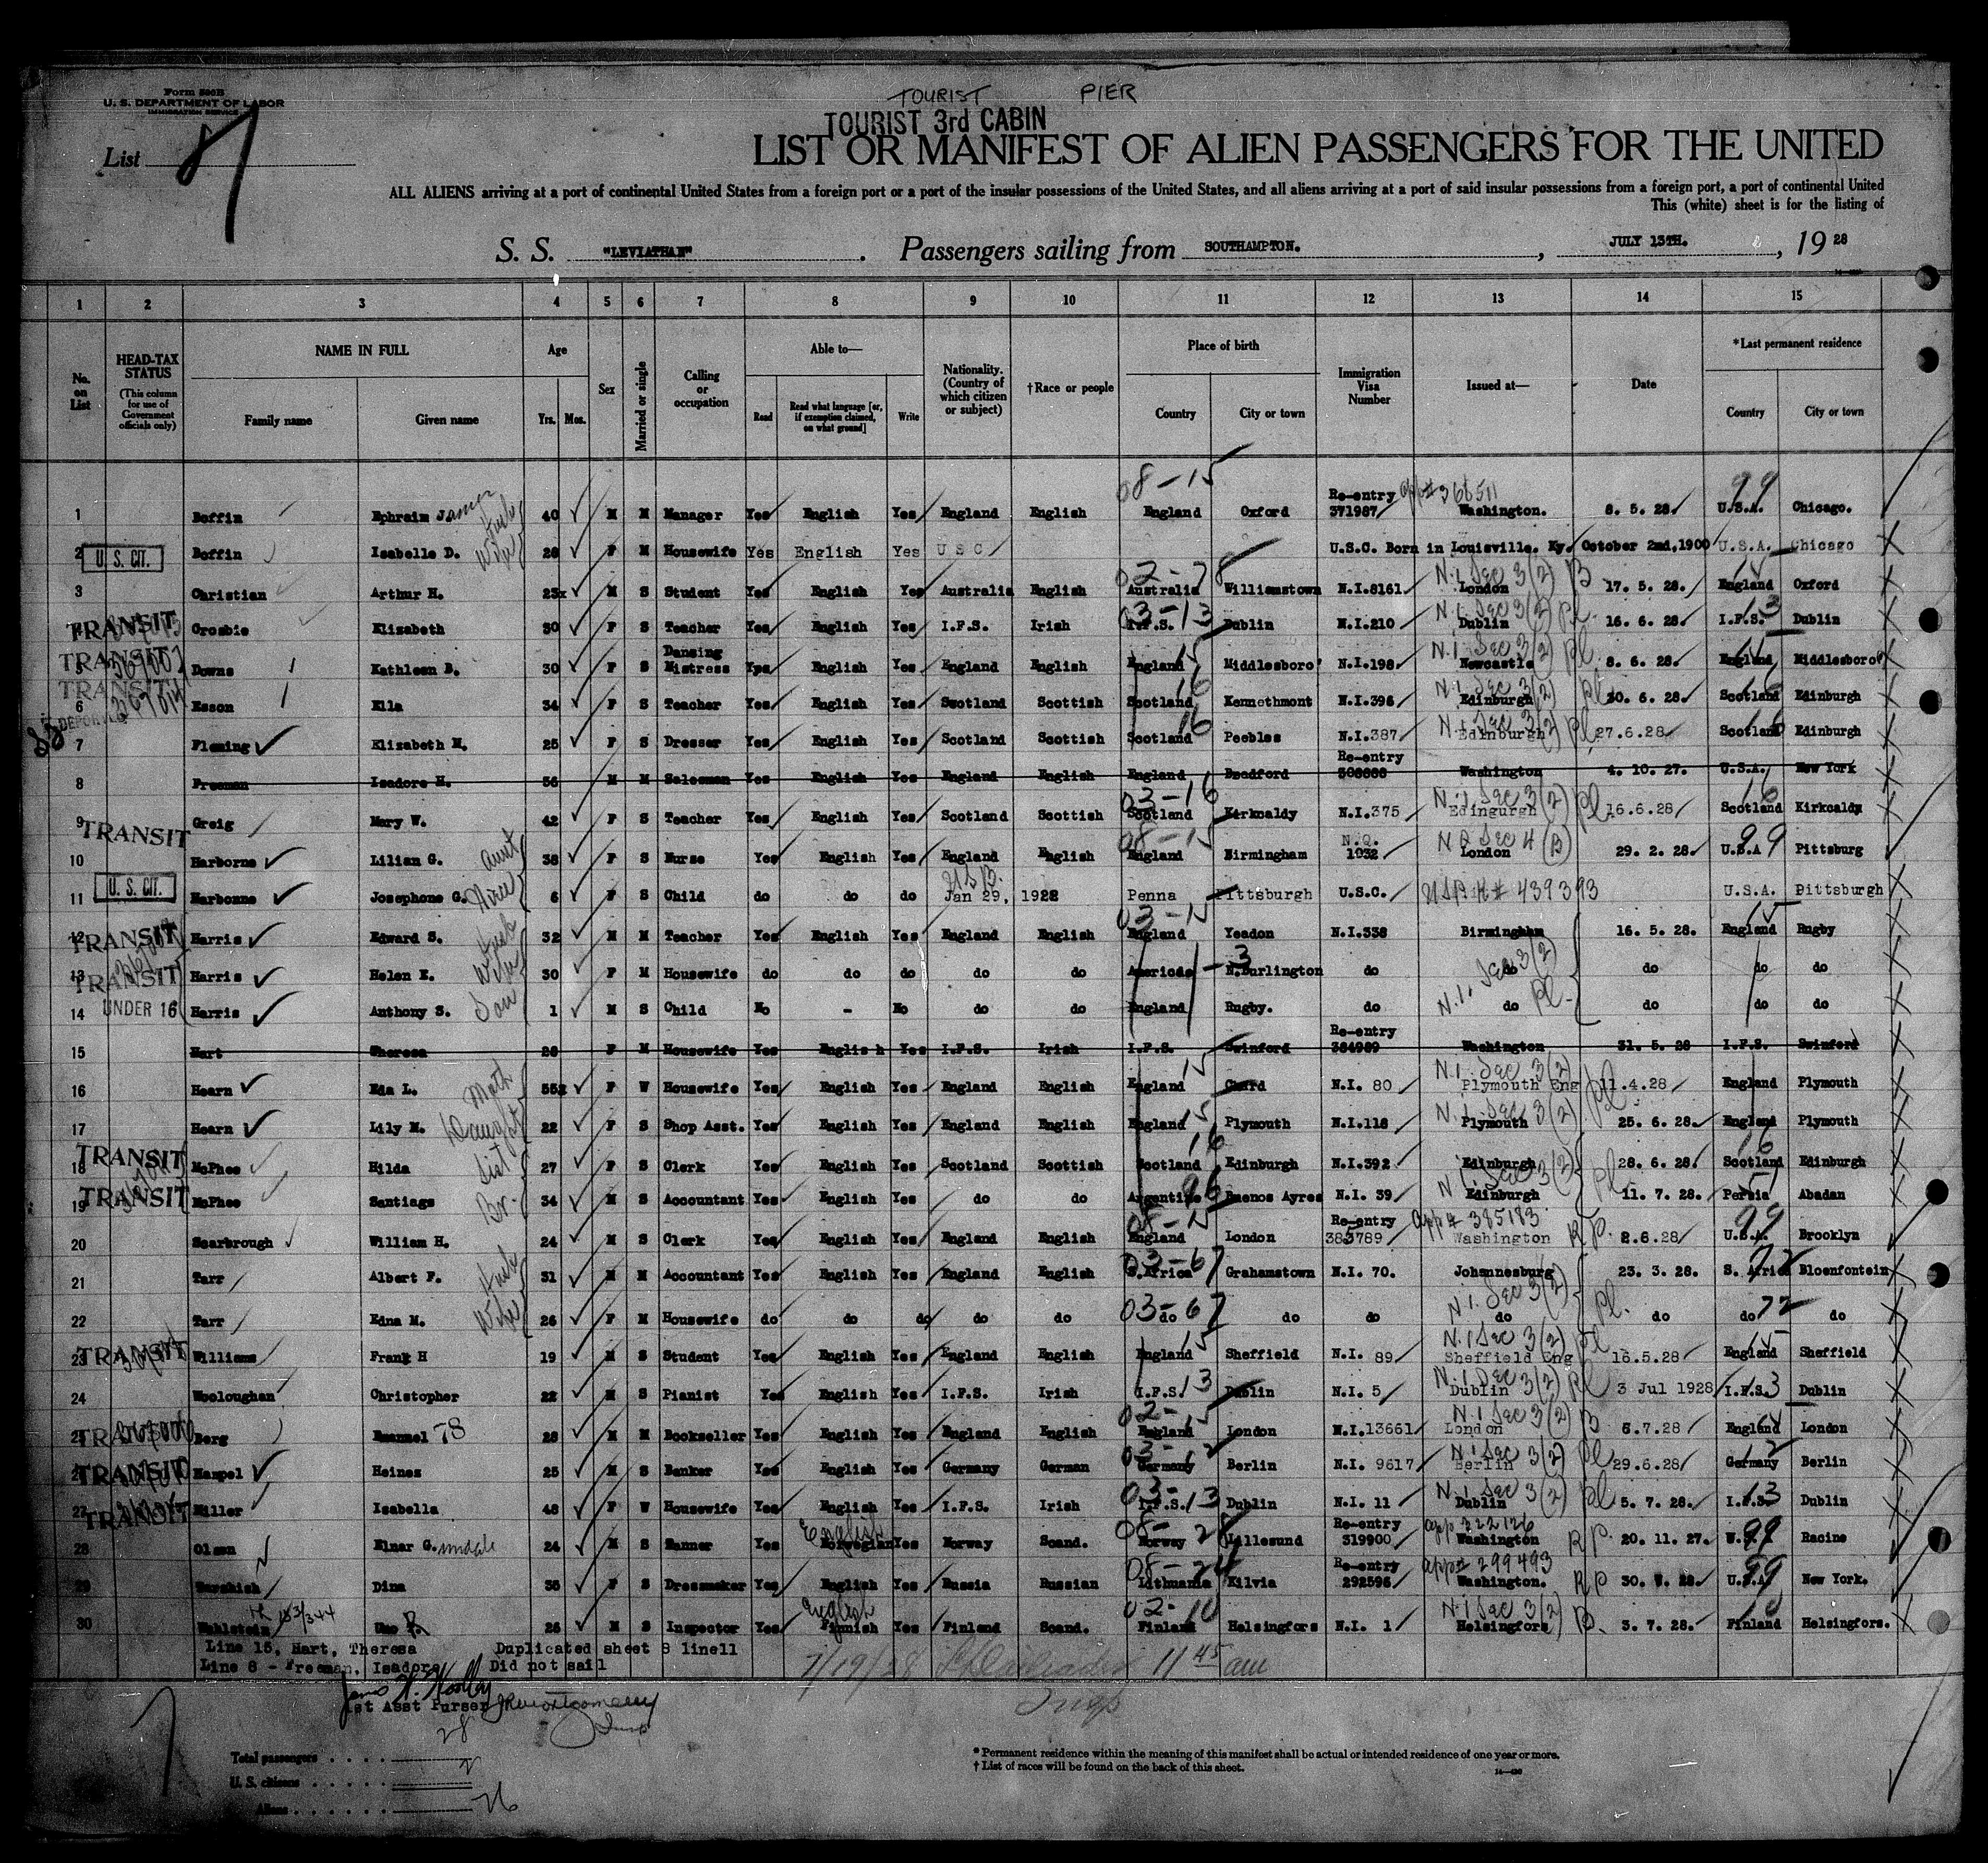 Form 500B
U. S. DEPARTMENT OF LABOR
IMMIGRATION SERVICE
TOURIST PIER
TOURIST 3rd CABIN
List 7
LIST OR MANIFEST OF ALIEN PASSENGERS FOR THE UNITED
ALL ALIENS arriving at a port of continental United States from a foreign port or a port of the insular possessions of the United States, and all aliens arriving at a port of said insular possessions from a foreign port, a port of continental United
This (white) sheet is for the listing of
S. S. "LEVIATHAN" . Passengers sailing from SOUTHAMPTON. , JULY 13TH. , 19 28
1 2 3 4 5 6 7 8 9 10 11 12 13 14 15
No. on List
HEAD-TAX STATUS (This column for use of Government officials only)
NAME IN FULL
Family name Given name
Age
Yrs. Mos.
Sex
Married or single
Calling or occupation
Able to—
Read Read what language [or, if exemption claimed, on what ground] Write
Nationality. (Country of which citizen or subject)
†Race or people
Place of birth
Country City or town
Immigration Visa Number
Issued at—
Date
*Last permanent residence
Country City or town
1 Boffin Ephraim James Husb 40 M M Manager Yes English Yes England English 08-15 England Oxford Re-entry 371987 app# 366511 Washington. 8. 5. 28. 99 U.S.A. Chicago.
2 U. S. CIT. Boffin Isabelle D. Wife 28 F M Housewife Yes English Yes U S C U.S.C. Born in Louisville. Ky. October 2nd,1900 U.S.A. Chicago
3 Christian Arthur H. 23x M S Student Yes English Yes Australia English 02-78 Australia Williamstown N.I.8161 N.I. Sec 3(2) B London 17. 5. 28. England Oxford
4 TRANSIT Crosbie Elizabeth 30 F S Teacher Yes English Yes I.F.S. Irish 03-13 I.F.S. Dublin N.I.210 N.I. Sec 3(2) Pl. Dublin 16. 6. 28. I.F.S. 13 Dublin
5 TRANSIT Downs Kathleen B. 30 F S Dancing Mistress Yes English Yes England English England 15 Middlesboro' N.I.198 N.I. Sec 3(2) Pl. Newcastle 8. 6. 28. England Middlesboro'
6 TRANSIT Esson Ella 34 F S Teacher Yes English Yes Scotland Scottish Scotland 16 Kennethmont N.I.396 N.I. Sec 3(2) Pl. Edinburgh 30. 6. 28. Scotland 16 Edinburgh
7 DEPORTED Fleming Elizabeth M. 25 F S Dresser Yes English Yes Scotland Scottish Scotland 16 Peebles N.I.387 N.I. Sec 3(2) Pl Edinburgh 27.6.28 Scotland 16 Edinburgh
8 Freeman Isadore H. 56 M M Salesman Yes English Yes England English England Bradford Re-entry Washington 4. 10. 27. U.S.A. New York
9 TRANSIT Greig Mary W. 42 F S Teacher Yes English Yes Scotland Scottish 03-16 Scotland Kirkcaldy N.I.375 N.I. Sec 3(2) Pl. Edingurgh 16.6.28 Scotland 16 Kirkcaldy
10 Harborne Lilian G. Aunt 38 F S Nurse Yes English Yes England English 08-15 England Birmingham N.Q. 1932 N Q Sec 4 (B) London 29. 2. 28. U.S.A 99 Pittsburg
11 U. S. CIT. Harborne Josephone G. Niece 6 F S Child do do do U S B. Jan 29, 1922 Penna Pittsburgh U.S.C. U.S.P. # 439393 U.S.A. Pittsburgh
12 TRANSIT Harris Edward S. Husb 32 M M Teacher Yes English Yes England English 03-15 England Yeadon N.I.338 Birmingham 16. 5. 28. England 15 Rugby
13 TRANSIT Harris Helen E. Wife 30 F M Housewife do do do do do America -3 N.Burlington do N.I. Sec 3(2) do do do do
14 UNDER 16 Harris Anthony S. Son 1 M S Child No - No do do England Rugby. do do Pl. do do do
15 Hart Theresa 28 F M Housewife Yes English Yes I.F.S. Irish I.F.S. Swinford Re-entry 384989 Washington 31. 5. 28 I.F.S. Swinford
16 Hearn Eda L. Moth 55x F W Housewife Yes English Yes England English England 15 Chard N.I. 80 N.I. Sec 3(2) Plymouth Eng Pl. 11.4.28 England Plymouth
17 Hearn Lily M. Daught 22 F S Shop Asst. Yes English Yes England English England 15 Plymouth N.I.118 N.I. Sec 3(2) Plymouth 25. 6. 28. England Plymouth
18 TRANSIT McPhee Hilda Sist 27 F S Clerk Yes English Yes Scotland Scottish Scotland 16 Edinburgh N.I.392 Edinburgh 28. 6. 28. Scotland 16 Edinburgh
19 TRANSIT McPhee Santiags Br. 34 M S Accountant Yes English Yes do do Argentine 96 Buenos Ayres N.I. 39 N I. Sec 3(2) Pl. Edinburgh 11. 7. 28. Persia 51 Abadan
20 Scarbrough William H. 24 M S Clerk Yes English Yes England English 08-15 England London Re-entry 383789 app # 385183 Washington R P. 2.6.28 99 U.S.A. Brooklyn
21 Tarr Albert F. Husb 31 M M Accountant Yes English Yes England English 03-67 S.Africa Grahamstown N.I. 70. Johannesburg 23. 3. 28. S. Africa 72 Bloenfontein
22 Tarr Edna M. Wife 26 F M Housewife do do do do do 03-67 do do do N I. Sec 3(2) Pl. do do do 72 do
23 TRANSIT Williams Frank H 19 M S Student Yes English Yes England English England 15 Sheffield N.I. 89 N.I Sec 3(2) Pl Sheffield Eng 16.5.28 England 15 Sheffield
24 Wooloughan Christopher 22 M S Pianist Yes English Yes I.F.S. Irish I.F.S. 13 Dublin N.I. 5 N.I. Sec 3(2) Pl Dublin 3 Jul 1928 I.F.S. 13 Dublin
25 TRANSIT Berg Emannel 78 28 M M Bookseller Yes English Yes England English 02-15 England London N.I.13661 N.I Sec 3(2) B London 5.7.28 England 15 London
26 TRANSIT Hampel Heines 25 M S Banker Yes English Yes Germany German 03-12 Germany Berlin N.I. 9617 N.I Sec 3(2) Pl Berlin 29.6.28 Germany 12 Berlin
27 TRANSIT Miller Isabella 48 F W Housewife Yes English Yes I.F.S. Irish 03-13 I.F.S. Dublin N.I. 11 N.I. Sec 3(2) Pl Dublin 5. 7. 28. I.F.S. 13 Dublin
28 Olsen Elnar G. 24 M S Tanner Yes English Norwegian Yes Norway Scand. 08-28 Norway Aillesund Re-entry 319900 app 322126 Washington R P. 20. 11. 27. 99 Racine
29 Dina 35 F S Dressmaker Yes English Yes Russia Russian 08-24 Lithuania Kilvia Re-entry 292596 app# 299493 Washington. R P 30. 28. U.S.A 99 New York.
30 Wahlstein Uno R 26 M S Inspector Yes English Finnish Yes Finland Scand. 02-10 Finland Helsingfors N.I. 1 N.I Sec 3(2) B. Helsingfors 3. 7. 28. Finland 10 Helsingfors.
Line 15, Hart, Theresa Duplicated sheet 8 line11
Line 8 - Freeman, Isadore Did not sail
7/19/28 11 45 am
Insp
1st Asst Purser JRMontgomery
Insp
28
Total passengers . . . .
U. S. citizens . . . . . 2
Aliens . . . . . . 26
* Permanent residence within the meaning of this manifest shall be actual or intended residence of one year or more.
† List of races will be found on the back of this sheet.